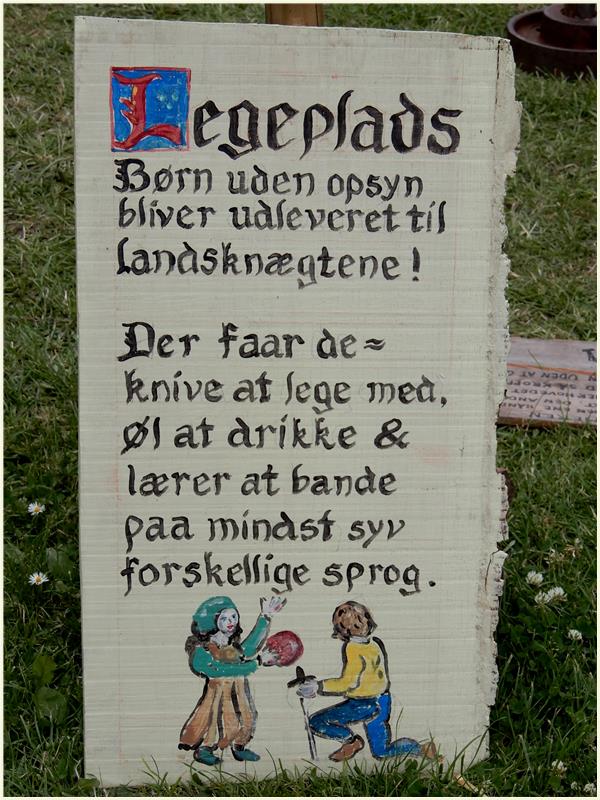 Legeplads
Børn uden opsyn
bliver udleveret til
Landsknægtene!
Der faar de≈
knive at lege med,
Øl at drikke &
lærer at bande
paa mindst syv
forskellige sprog.